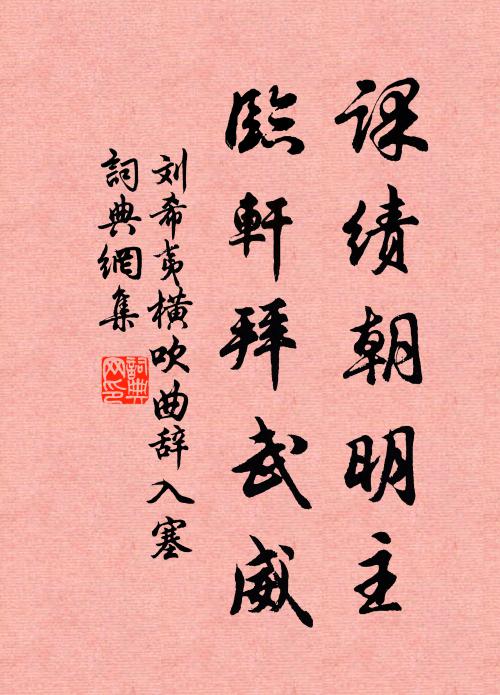 课绩朝明主
臨軒拜武威
刘希夷横吹曲辞入塞
詞典網集
詞典
网印